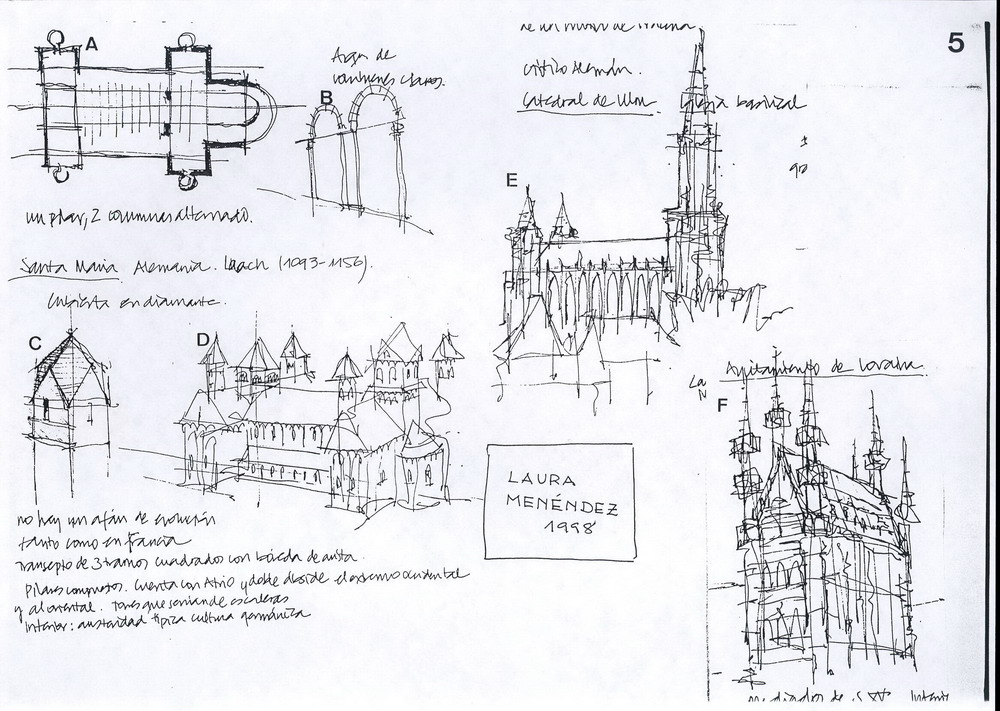 5
A
Arqu de
B
un pilar, 2 columnas alternado.
Santa Maria Alemania. Laach (1093-1156).
Cubierta en diamante.
C
D
no hay un afán de evolución
tanto como en Francia
Transepto de 3 tramos cuadrados con bóveda de arista.
Pilares compuestos. Cuenta con Atrio y doble ábside el extremo occidental
y al oriental. Torres que servían de escaleras
Interior: austeridad típica cultura germánica
de un de
Gótico Alemán.
Catedral de Ulm. Iglesia basilical
E
LAURA
MENÉNDEZ
1998
Ayuntamiento de Lovaina
La
N
F
mediados de s. XV